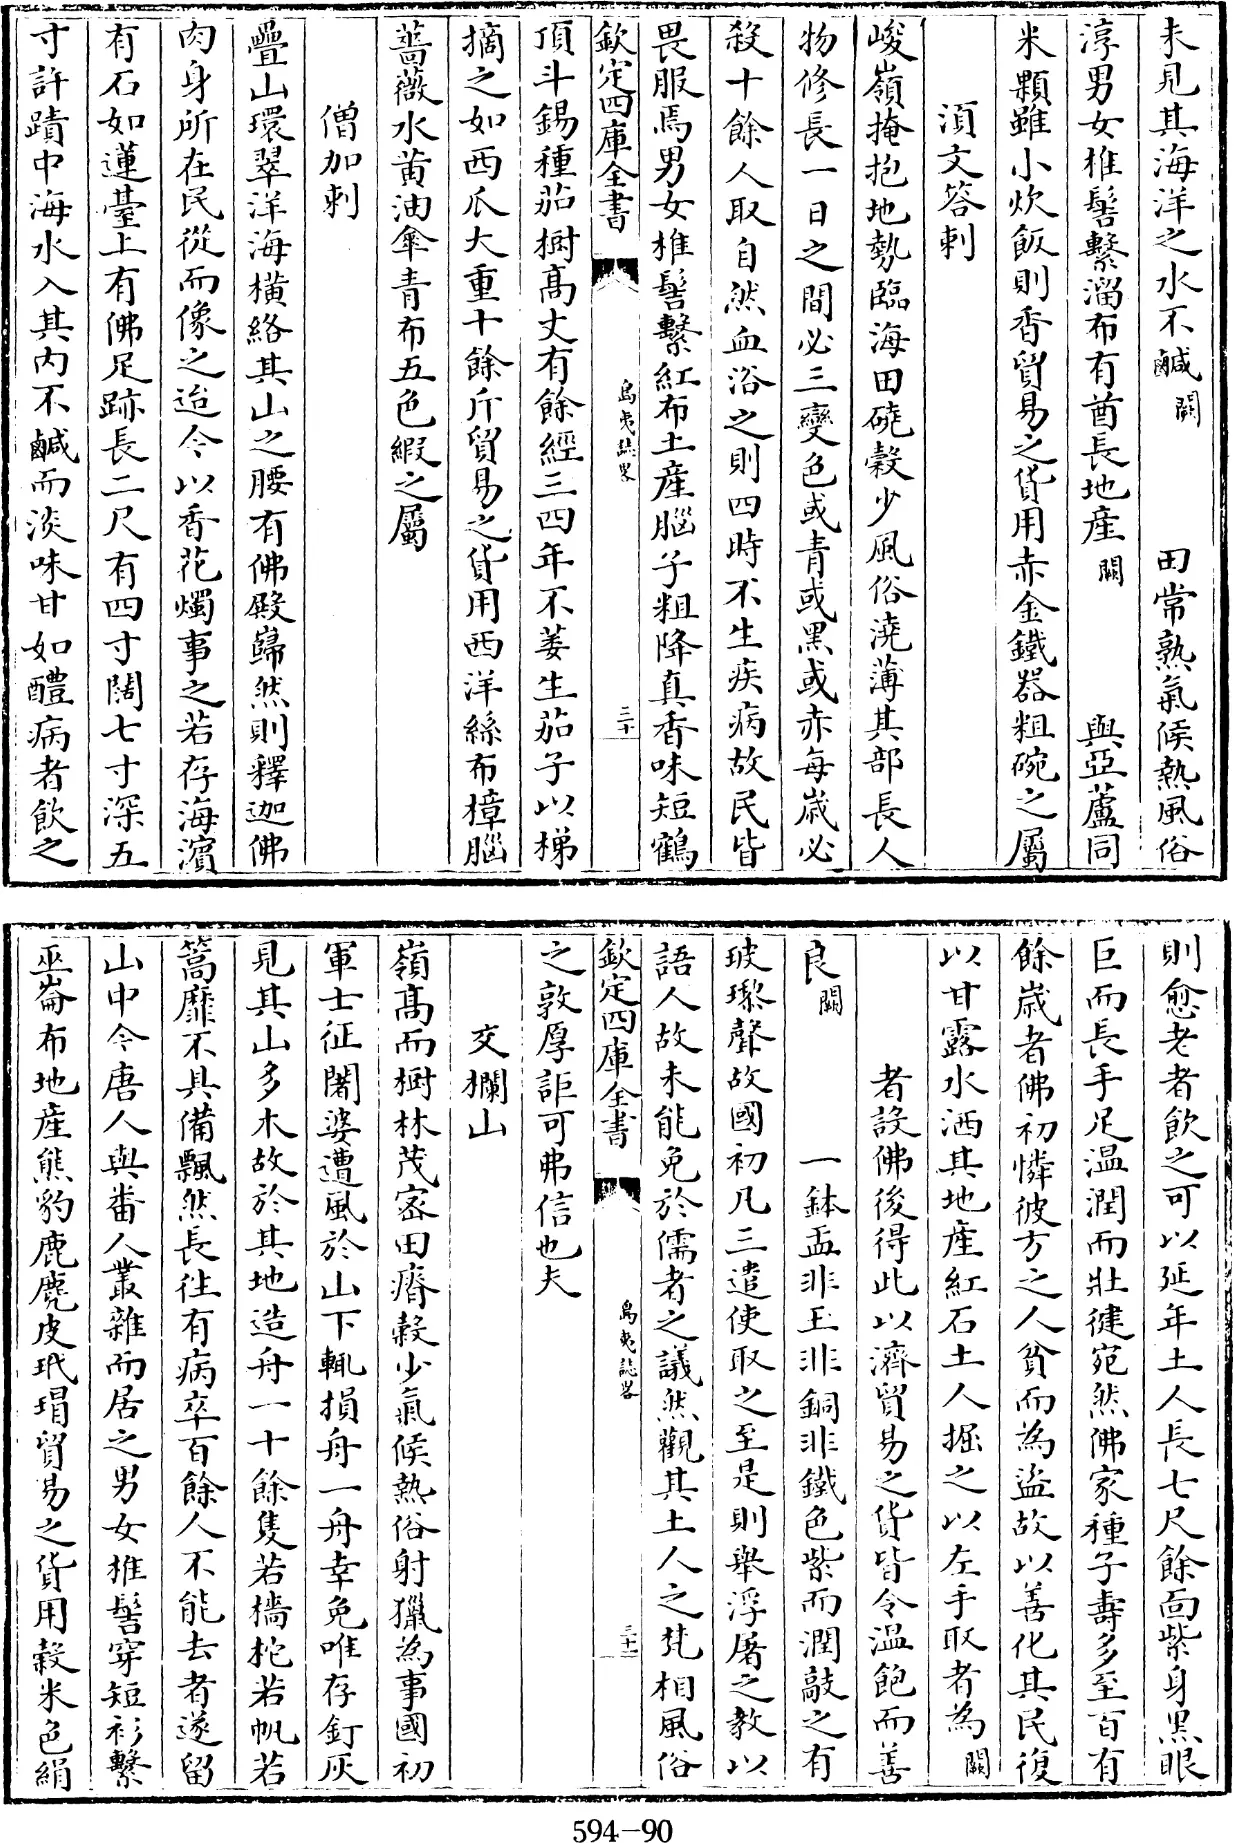 未見其海洋之水不鹹闕 田常熟氣候熱風俗
淳男女椎髻繫溜布有酋長地産闕 與亞蘆同
米顆雖小炊飯則香貿易之貨用赤金鐵器粗碗之屬
須文答剌
峻嶺掩抱地勢臨海田磽穀少風俗澆薄其部長人
物修長一日之間必三變色或青或黑或赤每歳必
殺十餘人取自然血浴之則四時不生疾病故民皆
畏服焉男女椎髻繫紅布土産腦子粗降真香味短鶴
欽定四庫全書 島夷誌畧 三十
頂斗錫種茄樹髙丈有餘經三四年不萎生茄子以梯
摘之如西瓜大重十餘斤貿易之貨用西洋絲布樟腦
薔薇水黄油傘青布五色緞之屬
僧加剌
疊山環翠洋海橫絡其山之腰有佛殿巋然則釋迦佛
肉身所在民從而像之迨今以香花燭事之若存海濱
有石如蓮臺上有佛足跡長二尺有四寸闊七寸深五
寸許蹟中海水入其内不鹹而淡味甘如醴病者飲之
則愈老者飲之可以延年土人長七尺餘面紫身黑眼
巨而長手足温潤而壯徤宛然佛家種子壽多至百有
餘歳者佛初憐彼方之人貧而為盜故以善化其民復
以甘露水洒其地産紅石土人掘之以左手取者為闕
者設佛後得此以濟貿易之貨皆令温飽而善
良闕 一鉢盂非玉非銅非鐵色紫而潤敲之有
玻瓈聲故國初凡三遣使取之至是則舉浮屠之教以
語人故未能免於儒者之議然觀其土人之梵相風俗
欽定四庫全書 島夷誌畧 三十一
之敦厚詎可弗信也夫
交欄山
嶺髙而樹林茂密田瘠穀少氣候熱俗射獵為事國初
軍士征闍婆遭風於山下輒損舟一舟幸免唯存釘灰
見其山多木故於其地造舟一十餘隻若檣柁若帆若
篙靡不具備飄然長往有病卒百餘人不能去者遂留
山中今唐人與番人叢雜而居之男女椎髻穿短衫繫
巫崙布地産熊豹鹿麂皮玳瑁貿易之貨用穀米色絹
594-90